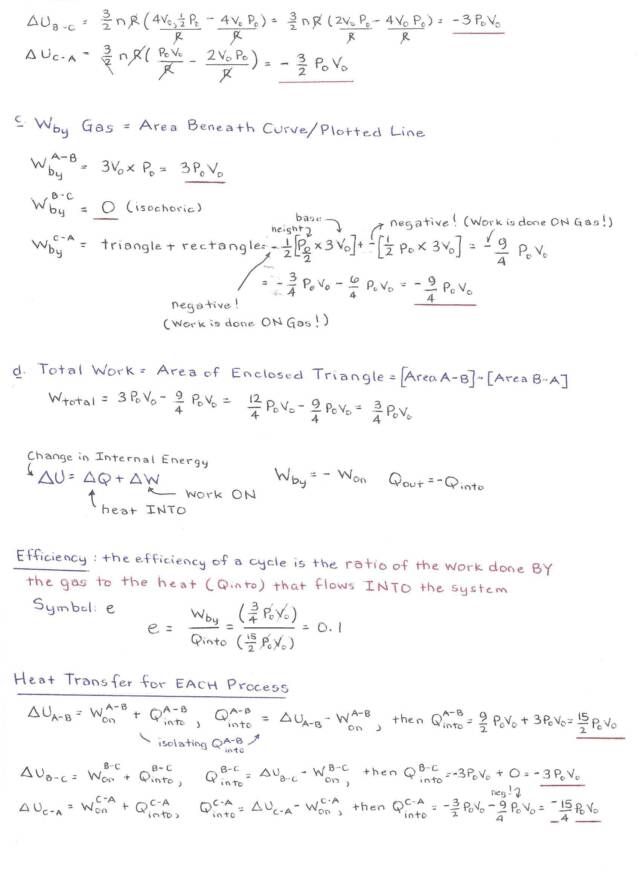 ΔU_B-C = 3/2 nR (4V₀·½P₀/R - 4V₀P₀/R) = 3/2 nR (2V₀P₀/R - 4V₀P₀/R) = -3P₀V₀
ΔU_C-A = 3/2 nR (P₀V₀/R - 2V₀P₀/R) = -3/2 P₀V₀
c. Wby Gas = Area Beneath Curve/Plotted Line
W_by^A-B = 3V₀ x P₀ = 3P₀V₀
W_by^B-C = 0 (isochoric)
height base negative! (Work is done ON Gas!)
W_by^C-A = triangle + rectangle = -1/2[P₀/2 x 3V₀] + -[1/2 P₀ x 3V₀] = -9/4 P₀V₀
= -3/4 P₀V₀ - 6/4 P₀V₀ = -9/4 P₀V₀
negative!
(Work is done ON Gas!)
d. Total Work = Area of Enclosed Triangle = [Area A-B] - [Area B-A]
W_total = 3P₀V₀ - 9/4 P₀V₀ = 12/4 P₀V₀ - 9/4 P₀V₀ = 3/4 P₀V₀
Change in Internal Energy
ΔU = ΔQ + ΔW W_by = -W_on Q_out = -Q_into
work ON
heat INTO
Efficiency: the efficiency of a cycle is the ratio of the work done BY
the gas to the heat (Qinto) that flows INTO the system
Symbol: e
e = W_by/Q_into = (3/4 P₀V₀)/(15/2 P₀V₀) = 0.1
Heat Transfer for EACH Process
ΔU_A-B = W_on^A-B + Q_into^A-B, Q_into^A-B = ΔU_A-B - W_on^A-B, then Q_into^A-B = 9/2 P₀V₀ + 3P₀V₀ = 15/2 P₀V₀
isolating Q_into^A-B
ΔU_B-C = W_on^B-C + Q_into^B-C, Q_into^B-C = ΔU_B-C - W_on^B-C, then Q_into^B-C = -3P₀V₀ + 0 = -3P₀V₀
neg!
ΔU_C-A = W_on^C-A + Q_into^C-A, Q_into^C-A = ΔU_C-A - W_on^C-A, then Q_into^C-A = -3/2 P₀V₀ - 9/4 P₀V₀ = -15/4 P₀V₀